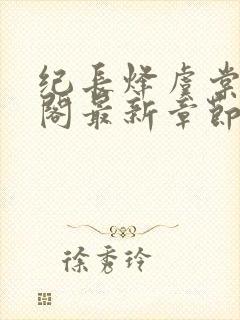 纪长烽虞棠
阁最新章节
徐秀玲